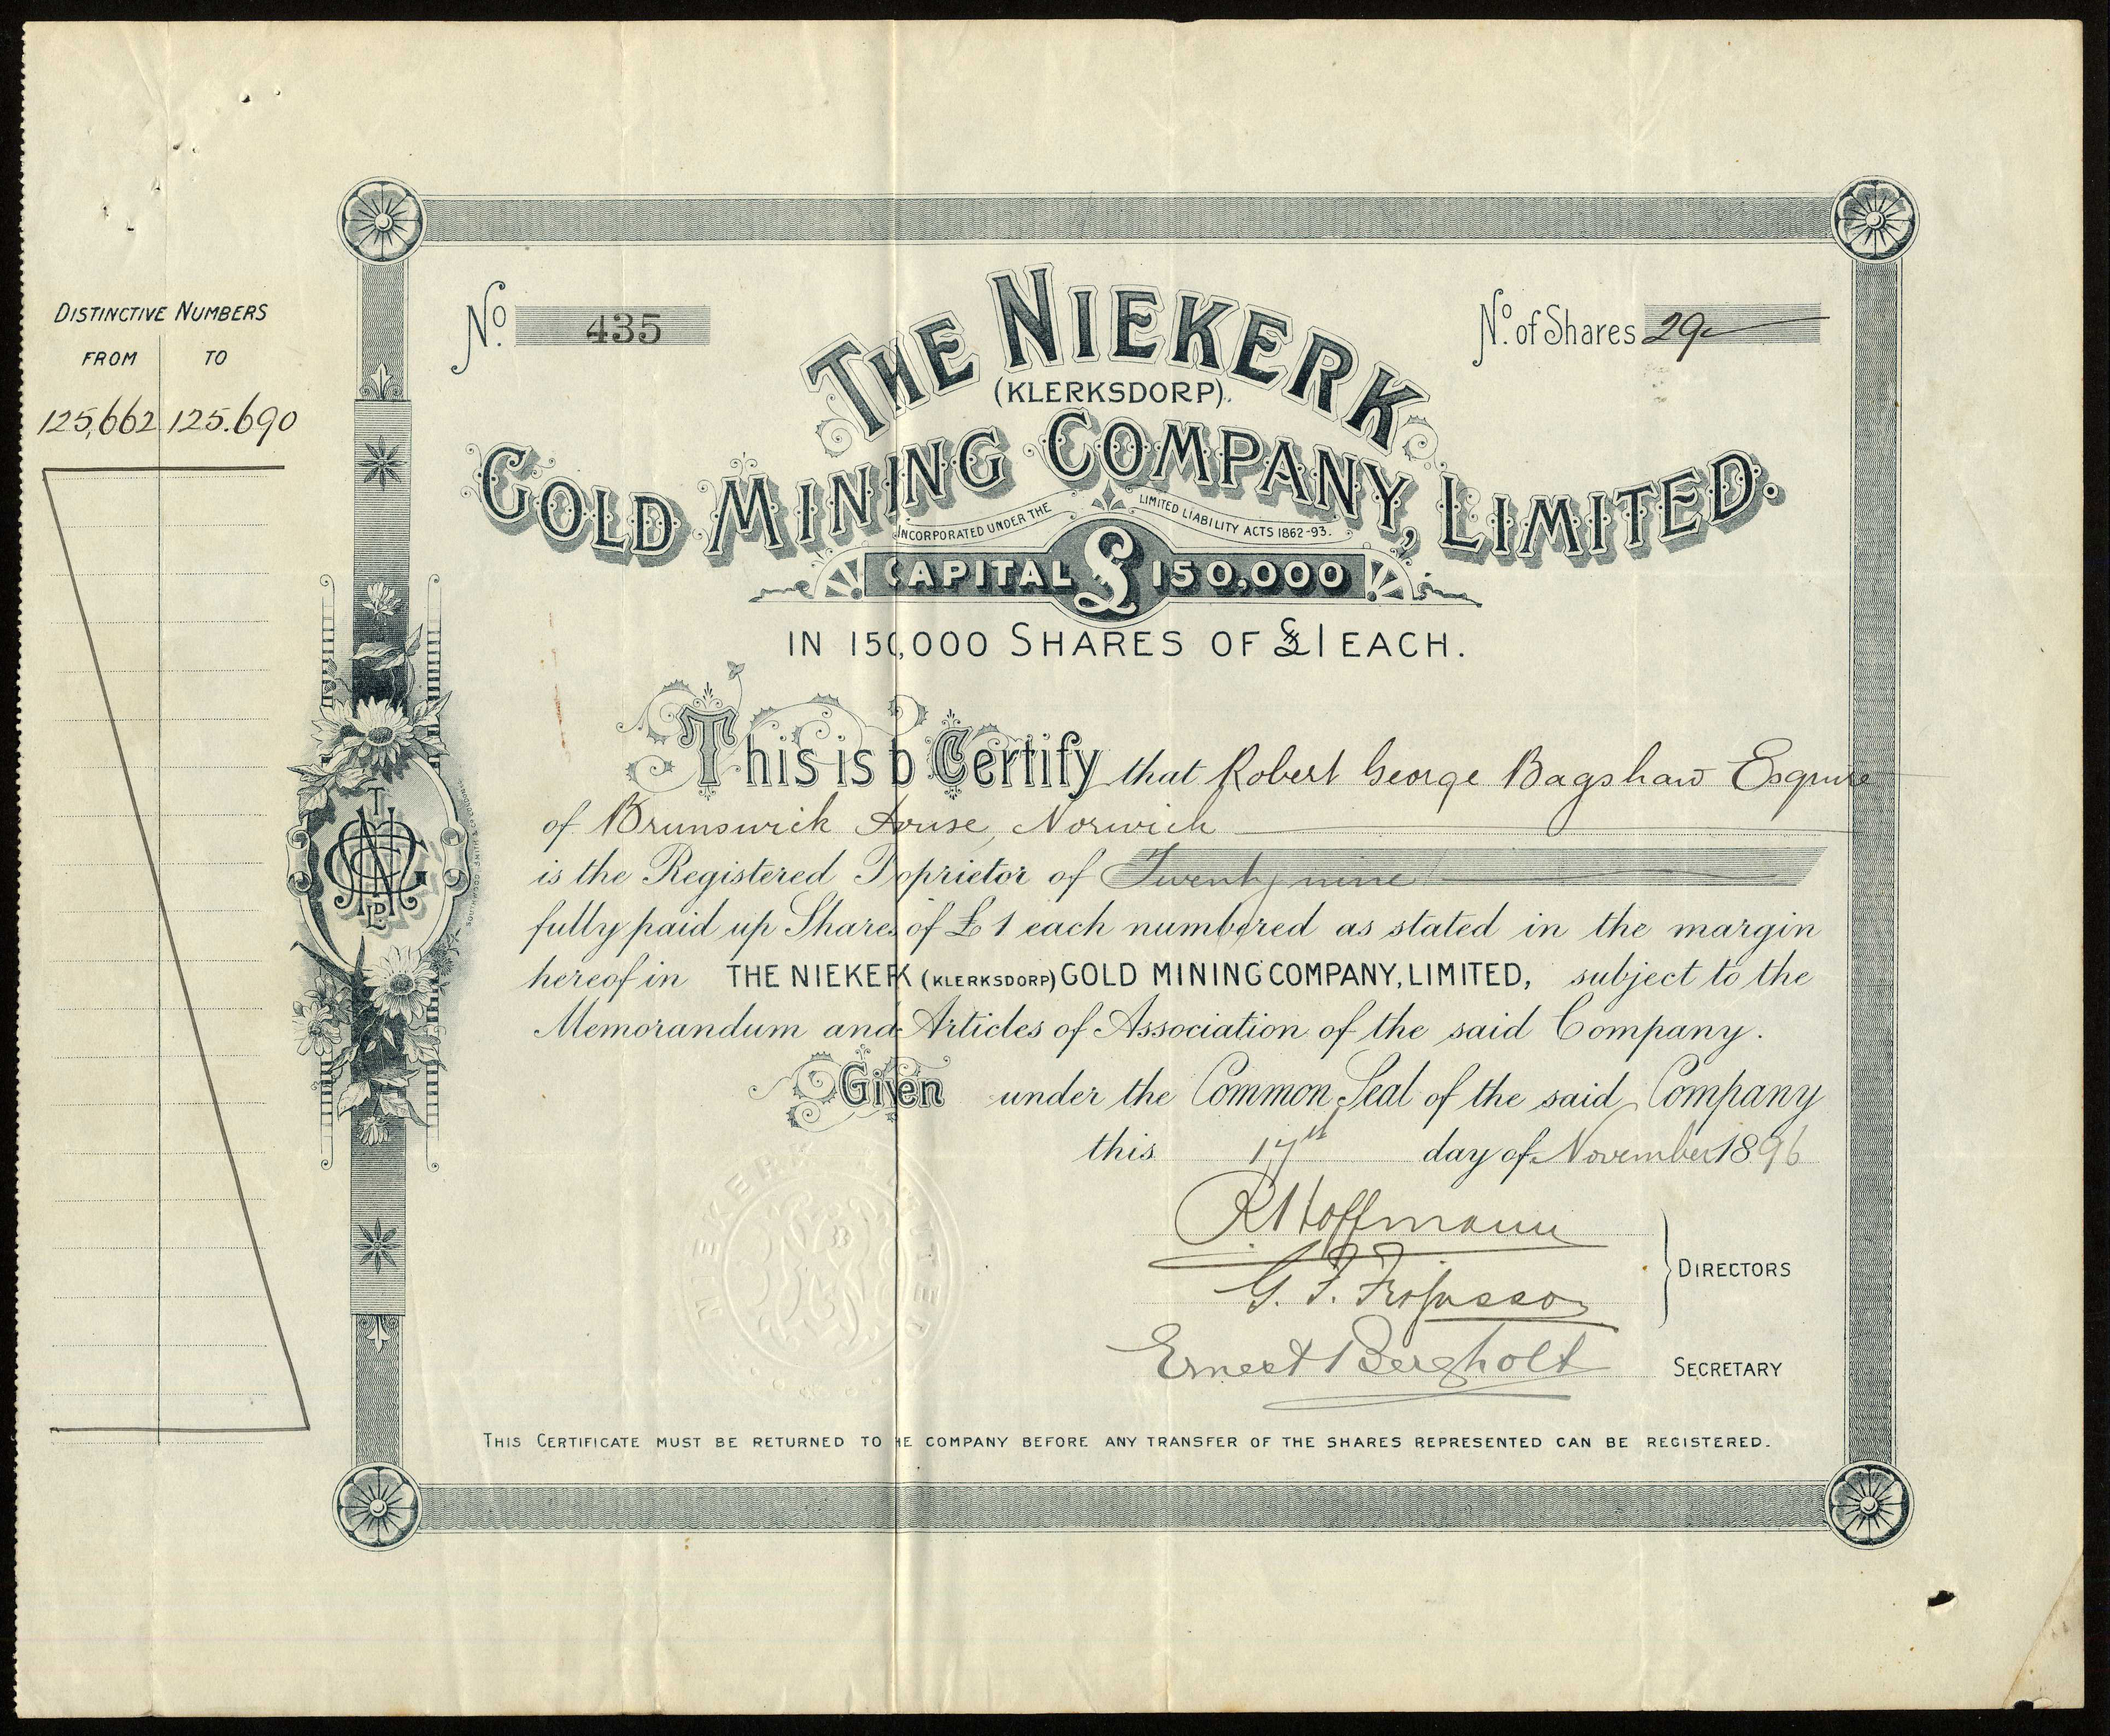 DISTINCTIVE NUMBERS
FROM TO
125,662 125.690
No. 435
No. of Shares 29
THE NIEKERK
(KLERKSDORP).
GOLD MINING COMPANY, LIMITED.
INCORPORATED UNDER THE LIMITED LIABILITY ACTS 1862-93.
CAPITAL £150,000
IN 150,000 SHARES OF £1 EACH.
This is to Certify that Robert George Bagshaw Esquire
of Brunswick House, Norwich
is the Registered Proprietor of Twenty nine
fully paid up Shares of £1 each numbered as stated in the margin
hereof in THE NIEKERK (KLERKSDORP) GOLD MINING COMPANY, LIMITED, subject to the
Memorandum and Articles of Association of the said Company.
Given under the Common Seal of the said Company
this 17th day of November 1896
R Hoffmann
G. F.
DIRECTORS
Ernest Bergholt SECRETARY
NIEKERK LIMITED
THIS CERTIFICATE MUST BE RETURNED TO THE COMPANY BEFORE ANY TRANSFER OF THE SHARES REPRESENTED CAN BE REGISTERED.